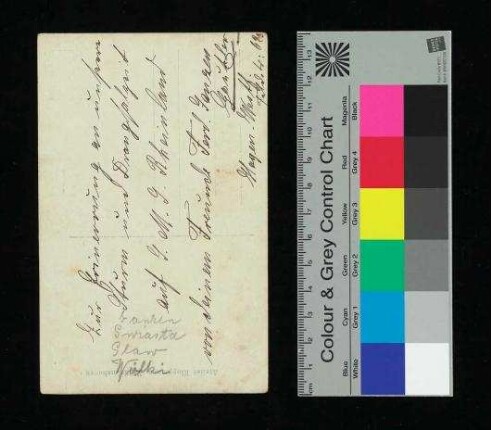 Zur Erinnerung an unsern
Sturm und Drangsalzeit
auf S. M. S. Rheinland
von deinem Freunde Ferd. Janzen
Hagen. Westf.
Janzen
Glaw
Colour & Grey Control Chart
Blue Cyan Green Yellow Red Magenta
White Grey 1 Grey 2 Grey 3 Grey 4 Black
cm 1 2 3 4 5 6 7 8 9 10 11 12 13